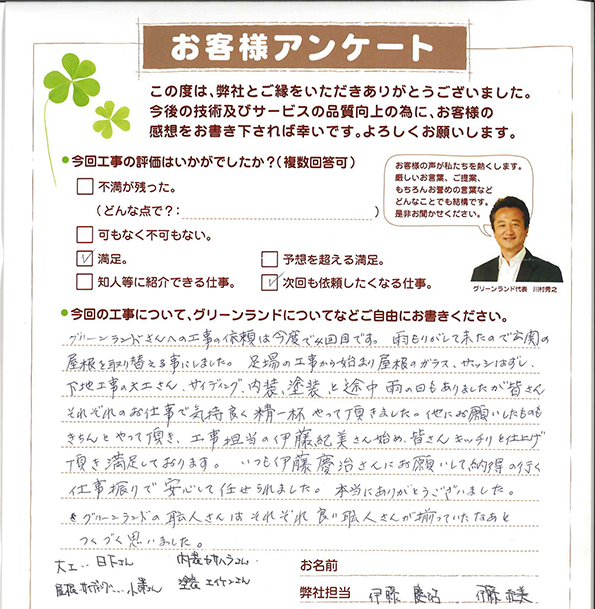 お客様アンケート
この度は、弊社とご縁をいただきありがとうございました。
今後の技術及びサービスの品質向上の為に、お客様の
感想をお書き下されば幸いです。よろしくお願いします。
今回工事の評価はいかがでしたか？（複数回答可）
不満が残った。
（どんな点で？：　　　　　）
可もなく不可もない。
満足。
予想を超える満足。
知人等に紹介できる仕事。
次回も依頼したくなる仕事。
お客様の声が私たちを熱くします。
厳しいお言葉、ご提案、
もちろんお誉めの言葉など
どんなことでも結構です。
是非お聞かせください。
グリーンランド代表　川村秀之
今回の工事について、グリーンランドについてなどご自由にお書きください。
グリーンランドさんへの工事の依頼は今度で4回目です。雨もりがして来たので玄関の
屋根を取り替える事にしました。足場の工事から始まり屋根のガラス、サッシはずし、
下地工事の大工さん、サイディング、内装、塗装、と途中雨の日もありましたが皆さん
それぞれのお仕事で気持良く精一杯やって頂きました。他にお願いしたものも
きちんとやって頂き、工事担当の伊藤紀美さん始め、皆さんキッチリと仕上げ
頂き満足しております。いつも伊藤慶治さんにお願いして、納得の行く
仕事振りで安心して任せられました。本当にありがとうございました。
グリーンランドの職人さんはそれぞれ良い職人さんが揃っていたなあと
つくづく思いました。
大工‥日下さん
内装カサハラさん
屋根・サイディング‥小澤さん
塗装エイケンさん
お名前
弊社担当　伊藤慶治　伊藤紀美